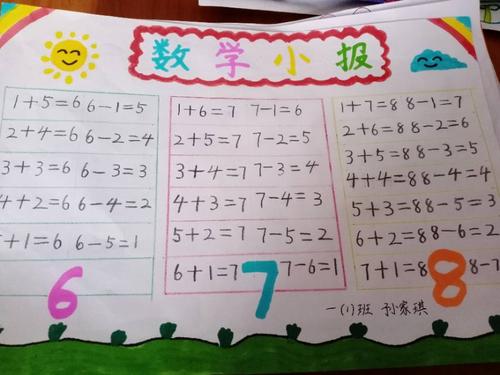 数学小报
1+5=6 6-1=5
2+4=6 6-2=4
3+3=6 6-3=3
4+2=6 6-4=2
+1=6 6-5=1
6
1+6=7 7-1=6
2+5=7 7-2=5
3+4=7 7-3=4
4+3=7 7-4=3
5+2=7 7-5=2
6+1=7 7-6=1
7
1+7=8 8-1=7
2+6=8 8-2=6
3+5=8 8-3=5
4+4=8 8-4=4
5+3=8 8-5=3
6+2=8 8-6=2
7+1=8 8-7
8
一(1)班 孙家琪